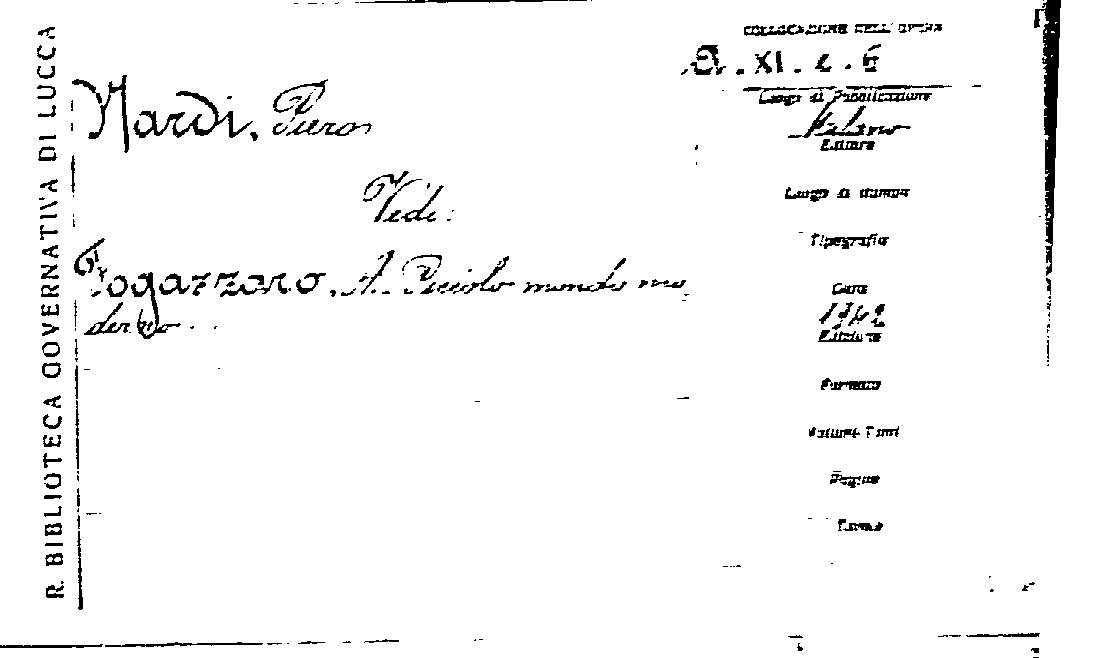 R. BIBLIOTECA GOVERNATIVA DI LUCCA
Nardi, Piero
Vedi:
Fogazzaro, A. Piccolo mondo mo
derno...
COLLOCAZIONE DELL'OPERA
XI. 6
Luogo di Pubblicazione
Milano
Editore
Luogo di stampa
Tipografia
Data
1942
Edizione
Formato
Volumi-Tomi
Pagine